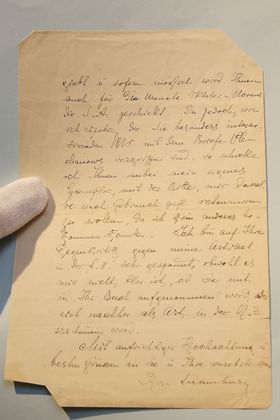 geht u sofern möglich wird Ihnen
auch für die Monate Oktober-Novemb
die S. A. geschickt. Da jedoch, wie
ich erfahre, die Sie besonders interes-
sierenden NNo5 mit dem Briefe Ple-
chanows vergriffen sind, so schicke
ich Ihnen anbei mein eigenes
Exemplar, mit der Bitte, mir dassel-
be nach Gebrauch gefl. retournieren
zu wollen, da ich kein anderes be-
kommen könnte. Ich bin auf Ihre
gegen meine Artikel
in der L. V. sehr gespannt, obwohl es
mir nicht klar ist, ob sie mit
in Ihr Buch aufgenommen wird oder
erst nachher als Art. in der N. Z.
erscheinen wird.
Mit aufrichtiger Hochachtung u
besten Grüssen an Sie u Ihre
Rosa Luxemburg